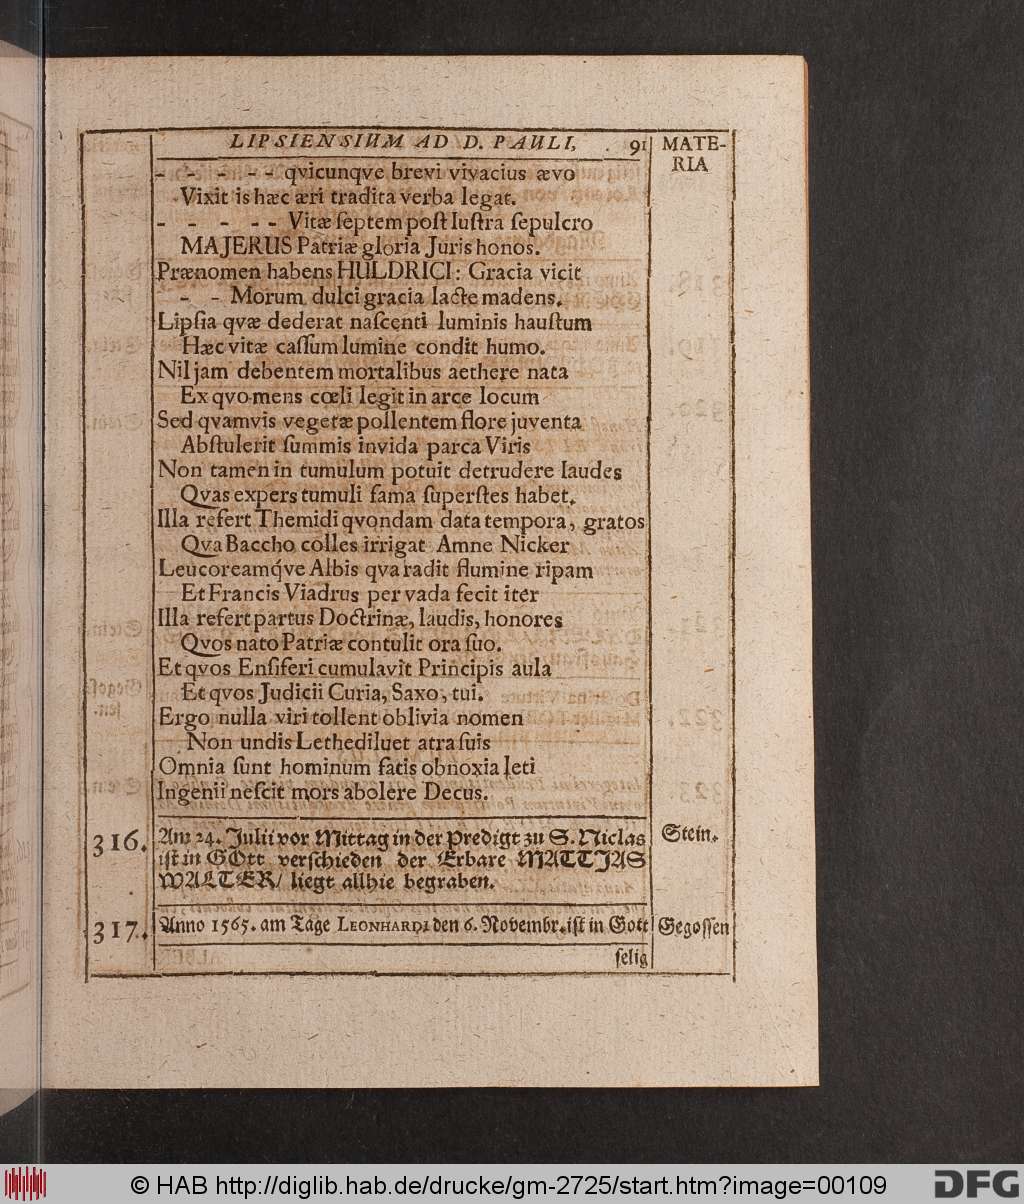 LIPSIENSIUM AD D. PAULI, . 91
MATE-
RIA
- - - - - qvicunqve brevi vivacius ævo
Vixit is hæc æri tradita verba legat.
- - - - - Vitæ ſeptem poſt luſtra ſepulcro
MAJERUS Patriæ gloria Juris honos.
Prænomen habens HULDRICI: Gracia vicit
- - Morum dulci gracia lacte madens.
Lipſia qvæ dederat naſcenti luminis hauſtum
Hæc vitæ caſſum lumine condit humo.
Nil jam debentem mortalibus aethere nata
Ex qvo mens cœli legit in arce locum
Sed qvamvis vegetæ pollentem flore juventa
Abſtulerit ſummis invida parca Viris
Non tamen in tumulum potuit detrudere laudes
Qvas expers tumuli fama ſuperſtes habet.
Illa refert Themidi qvondam data tempora, gratos
Qva Baccho colles irrigat Amne Nicker
Leucoreamq́ve Albis qva radit flumine ripam
Et Francis Viadrus per vada fecit iter
Illa refert partus Doctrinæ, laudis, honores
Qvos nato Patriæ contulit ora ſuo.
Et qvos Enſiferi cumulavit Principis aula
Et qvos Judicii Curia, Saxo, tui.
Ergo nulla viri tollent oblivia nomen
Non undis Lethe diluet atra ſuis
Omnia ſunt hominum fatis obnoxia leti
Ingenii neſcit mors abolere Decus.
316. Am 24. Julii vor Mittag in der Predigt zu S. Niclas
iſt in GOtt verſchieden der Erbare MATTJAS
WALTER/ liegt allhie begraben.
Stein.
317. Anno 1565. am Tage LEONHARDI den 6. Novembr. iſt in Gott
Gegoſſen
ſelig
© HAB http://diglib.hab.de/drucke/gm-2725/start.htm?image=00109
DFG